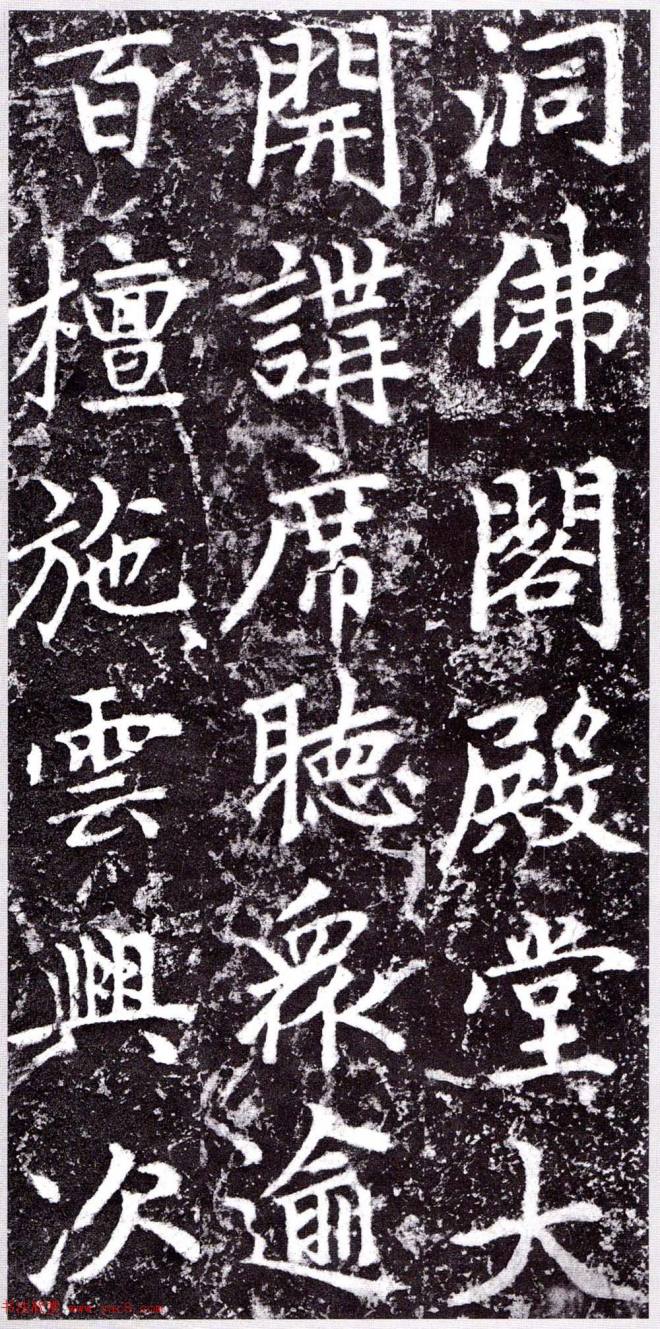 洞佛閣殿堂大
開講席聽衆逾
百檀施雲興次